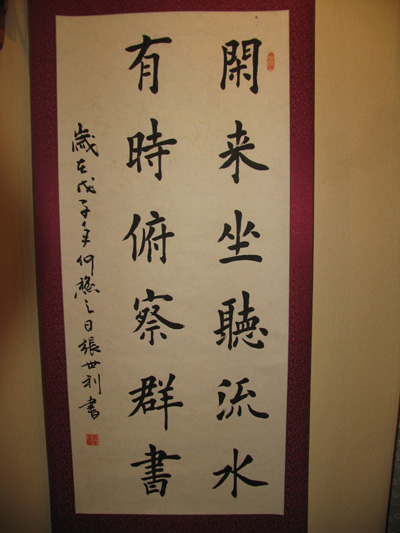 閑来坐聽流水
有時俯察群書
歲在戊子年仲穐之日張世利書